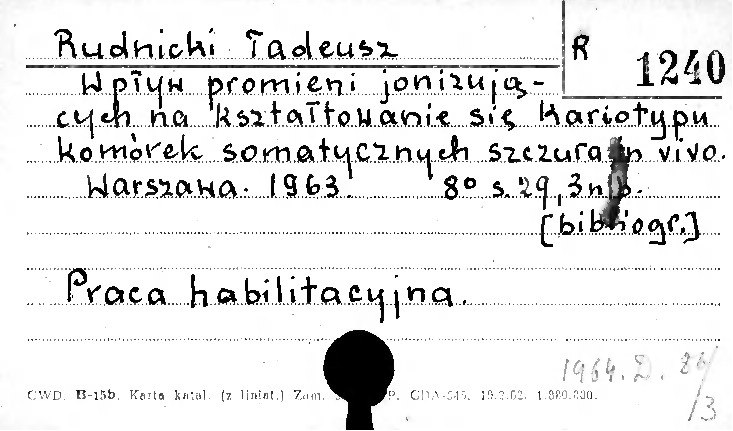 Rudnicki Tadeusz
R 1240
Wpływ promieni jonizują-
cych na kształtowanie się kariotypu
komórek somatycznych szczura in vivo.
Warszawa. 1963. 8° s. 29, 3 nlb.
[bibliogr.]
Praca habilitacyjna.
1964. D. 
/3
CWD. B-15b. Karta katal. (z liniat.) Zam. P. GDA-545. 19.2.62. 1.880.000.